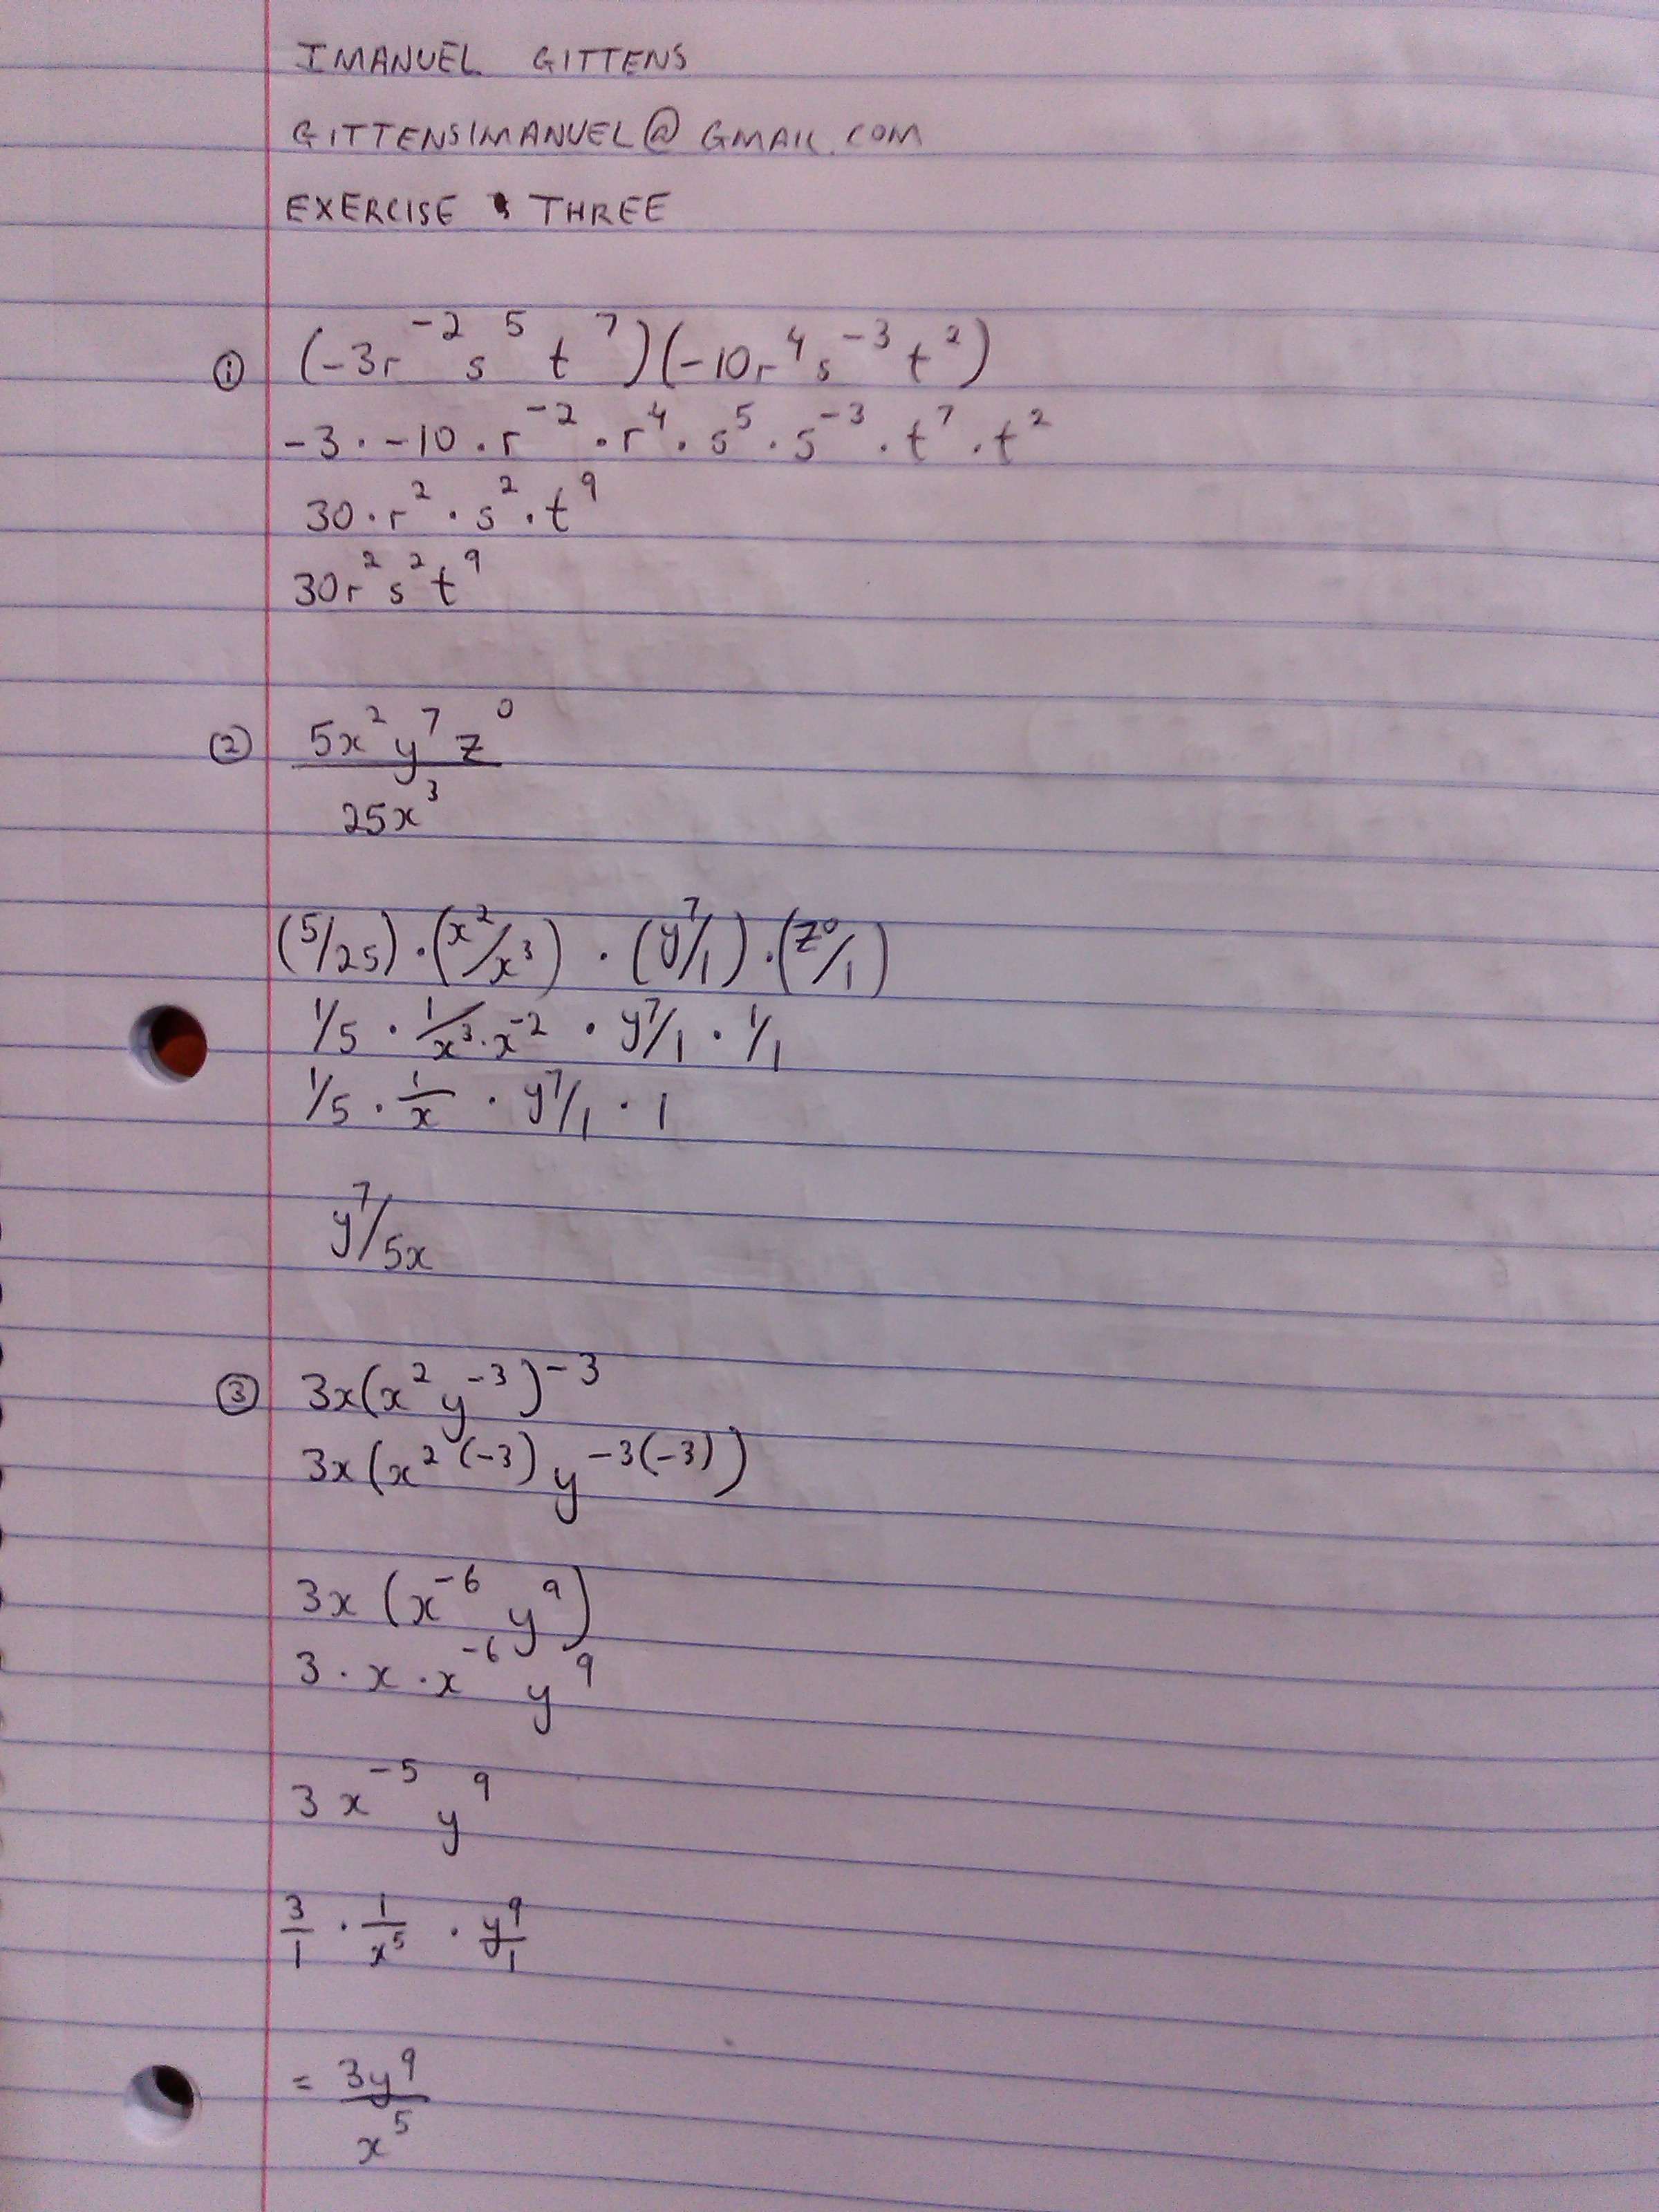 IMANUEL GITTENS
GITTENSIMANUEL@GMAIL.COM
EXERCISE THREE
① (-3r⁻² s⁵ t⁷)(-10r⁴ s⁻³ t²)
-3 · -10 · r⁻² · r⁴ · s⁵ · s⁻³ · t⁷ · t²
30 · r² · s² · t⁹
30r² s² t⁹
② 5x² y⁷ z⁰
25x³
(5/25) · (x²/x³) · (y⁷/1) · (z⁰/1)
1/5 · 1/x³·x⁻² · y⁷/1 · 1/1
1/5 · 1/x · y⁷/1 · 1
y⁷/5x
③ 3x(x² y⁻³)⁻³
3x(x²⁽⁻³⁾ y⁻³⁽⁻³⁾)
3x (x⁻⁶ y⁹)
3 · x · x⁻⁶ y⁹
3x⁻⁵ y⁹
3/1 · 1/x⁵ · y⁹/1
= 3y⁹
x⁵